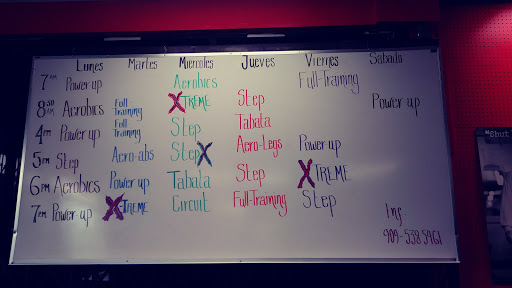 Lunes Martes Miercoles Jueves Viernes Sabado
7 AM Power up Aerobics Full-Training
8:30 AM Aerobics Full Training XTREME Step Power up
4 PM Power up Full Training Step Tabata
5 PM Step Aero-abs Step X Aero-Legs Power up
6 PM Aerobics Power up Tabala Step XTREME
7 PM Power up X-TREME Circuit Full-Training Step
Inf
909-538 5961
"Shut